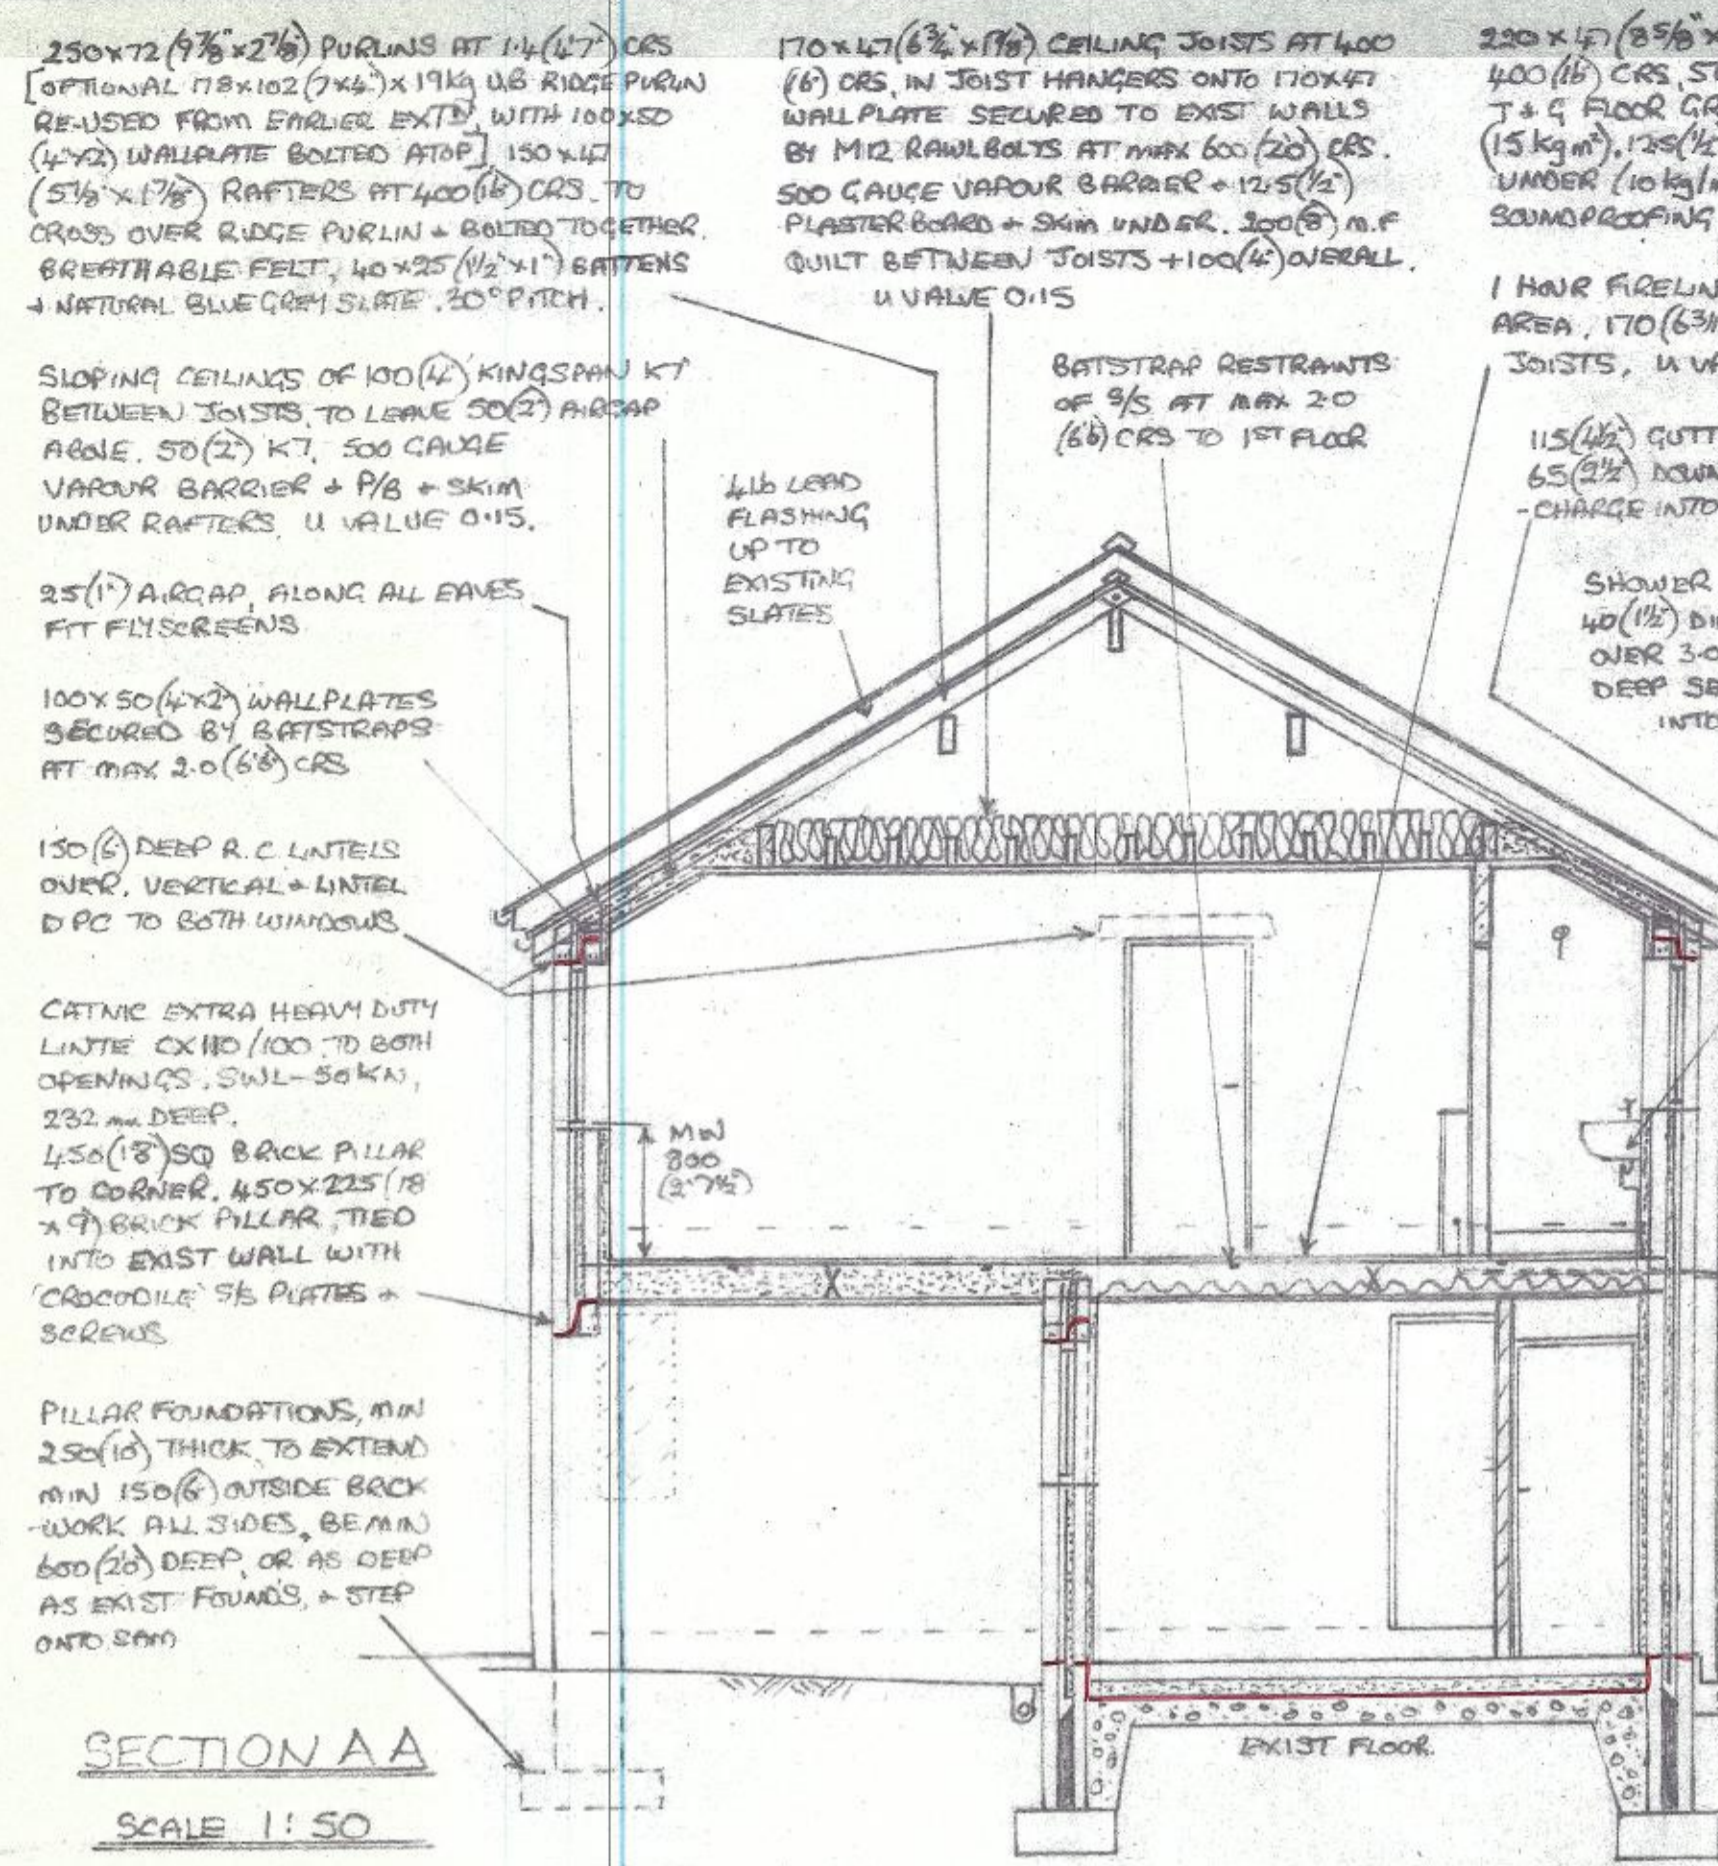 250x72 (9⅞"x2⅞") PURLINS AT 1.4(4'7") CRS
[OPTIONAL 178x102(7x4")x19kg UB RIDGE PURLIN
RE-USED FROM EARLIER EXTD, WITH 100x50
(4"x2") WALLPLATE BOLTED ATOP] 150x47
(5⅛"x1⅞") RAFTERS AT 400(16") CRS. TO
CROSS OVER RIDGE PURLIN & BOLTED TOGETHER.
BREATHABLE FELT, 40x25(1½"x1") BATTENS
& NATURAL BLUE GREY SLATE. 30° PITCH.
SLOPING CEILINGS OF 100(4") KINGSPAN K7
BETWEEN JOISTS, TO LEAVE 50(2") AIRGAP
ABOVE. 50(2") K7, 500 GAUGE
VAPOUR BARRIER & P/B & SKIM
UNDER RAFTERS. U VALUE 0.15.
25(1") AIRGAP, ALONG ALL EAVES
FIT FLYSCREENS
100x50(4"x2") WALLPLATES
SECURED BY BATSTRAPS
AT MAX 2.0(6'6") CRS
150(6") DEEP R.C. LINTELS
OVER. VERTICAL & LINTEL
DPC TO BOTH WINDOWS
CATNIC EXTRA HEAVY DUTY
LINTE CX110/100 TO BOTH
OPENINGS. SWL-50KN,
232mm DEEP.
450(18")SQ BRICK PILLAR
TO CORNER. 450x225(18
x9") BRICK PILLAR TIED
INTO EXIST WALL WITH
'CROCODILE' S/S PLATES &
SCREWS
PILLAR FOUNDATIONS, MIN
250(10") THICK, TO EXTEND
MIN 150(6") OUTSIDE BRICK
-WORK ALL SIDES, BE MIN
600(2'0") DEEP, OR AS DEEP
AS EXIST FOUND'S, & STEP
ONTO SAM
SECTION AA
SCALE 1:50
170x47(6¾"x1⅞") CEILING JOISTS AT 400
(16") CRS, IN JOIST HANGERS ONTO 170x47
WALLPLATE SECURED TO EXIST WALLS
BY M12 RAWLBOLTS AT MAX 600(2'0") CRS.
500 GAUGE VAPOUR BARRIER & 12.5(½")
PLASTERBOARD & SKIM UNDER. 200(8") M.F
QUILT BETWEEN JOISTS +100(4") OVERALL.
U VALUE 0.15
BATSTRAP RESTRAINTS
OF S/S AT MAX 2.0
(6'6") CRS TO 1ST FLOOR
4lb LEAD
FLASHING
UP TO
EXISTING
SLATES
MIN
800
(2'7½")
EXIST FLOOR.
220x47(8⅝"x
400(16") CRS, ST
T&G FLOOR GR
(15kgm²). 12.5(½
UNDER (10kg/m
SOUNDPROOFING
1 HOUR FIRELIN
AREA, 170(6
JOISTS, U VA
115(4½") GUTT
65(2½") DOWN
-CHARGE INTO
SHOWER
40(1½") DI
OVER 3.0
DEEP SE
INTO